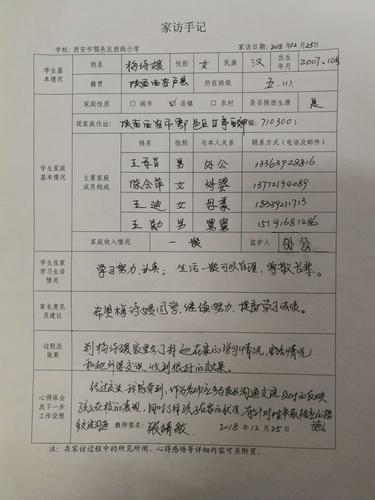 家访手记
学校:西安市鄠邑区西街小学 家访日期:2018年12月25日
学生基本情况 姓名 杨诗媛 性别 女 民族 汉 出生年月 2007.10
籍贯 陕西西安户县 所在班级 五.(1)
家庭性质 □城市 ☑县镇 □农村 是否陕西生源 是
学生家庭基本情况 现家庭住址: 陕西西安市鄠邑区 编:710300)
主要家庭成员构成 姓名 性别 与本人关系 联系方式(电话及邮件)
男 外公 13363928316
陈会萍 女 外婆 13772194089
王迪 女 母亲 18539211713
王勋 男 舅舅 15191681486
家庭收入情况 一般 监护人 外公
学生在家学习生活情况 学习努力、认真; 生活一般可以自理,尊敬长辈。
家长意见及建议 希望杨诗媛同学,继续努力,提高学习成绩。
过程及效果 到杨诗媛家里去了解她在家的学习情况,生活情况
和她外婆交流,收到很好的效果。
心得体会及下一步工作设想 经过交流,我感觉到,作为老师应多与家长沟通交流,及时的反映
孩子在校的表现,同时了解孩子在家的状况,有针对性
教师签名: 张晴敏 2018年12月25日
注:在家访过程中的所见所闻、心得感悟等详细内容可另附页。